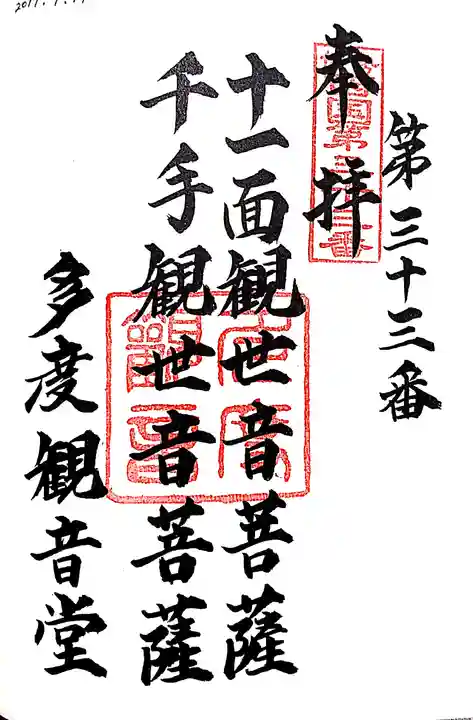 第三十三番
奉拝
十一面観世音菩薩
千手観世音菩薩
多度観音堂